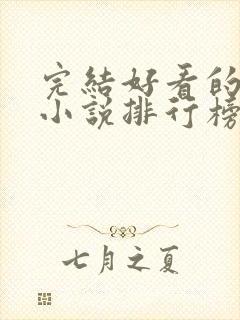 完結好看的
小說排行榜
七月之夏